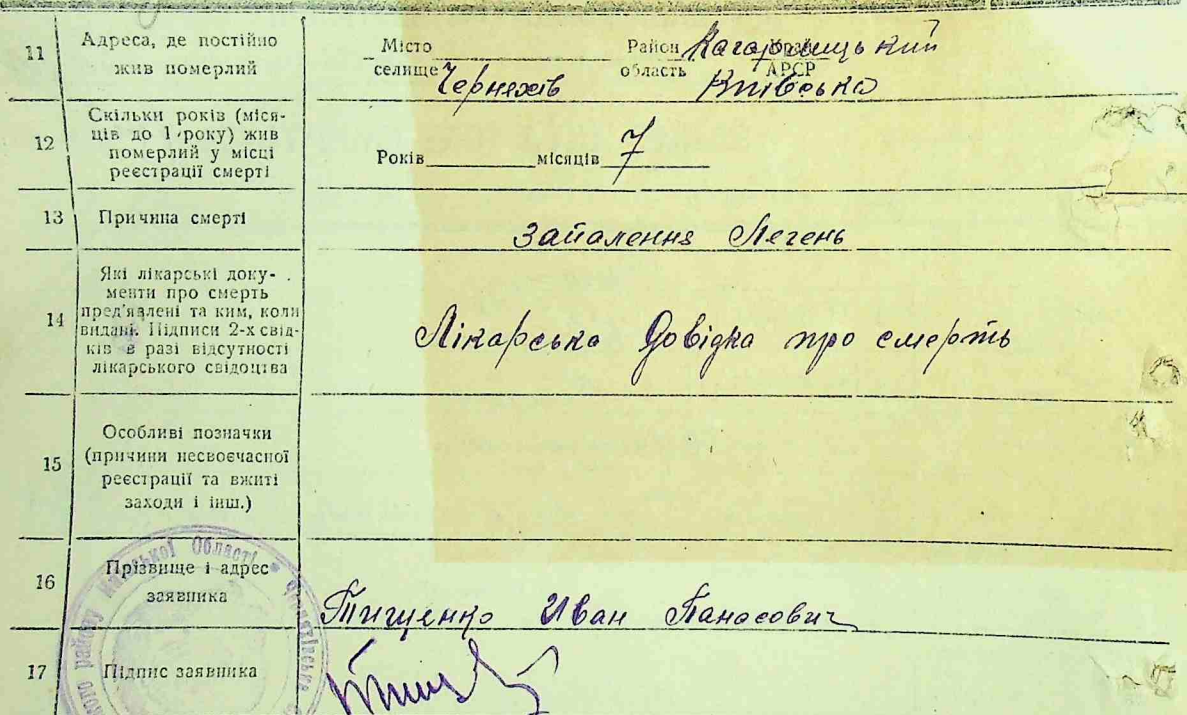 11 Адреса, де постійно жив померлий
Місто Район Кагарлицький
селище Черняхів область Край АРСР Київсько
12 Скільки років (міся-
ців до 1 року) жив
померлий у місці
реєстрації смерті
Років місяців 7
13 Причина смерті Запалення Легень
14 Які лікарські доку-
менти про смерть
пред'явлені та ким, коли
видані. Підписи 2-х свід-
ків в разі відсутності
лікарського свідоцтва
Лікарська Довідка про смерть
15 Особливі позначки
(причини несвоєчасної
реєстрації та вжиті
заходи і інш.)
16 Прізвище і адрес
заявника
Тищенко Иван Панасович
17 Підпис заявника
району Київської Області